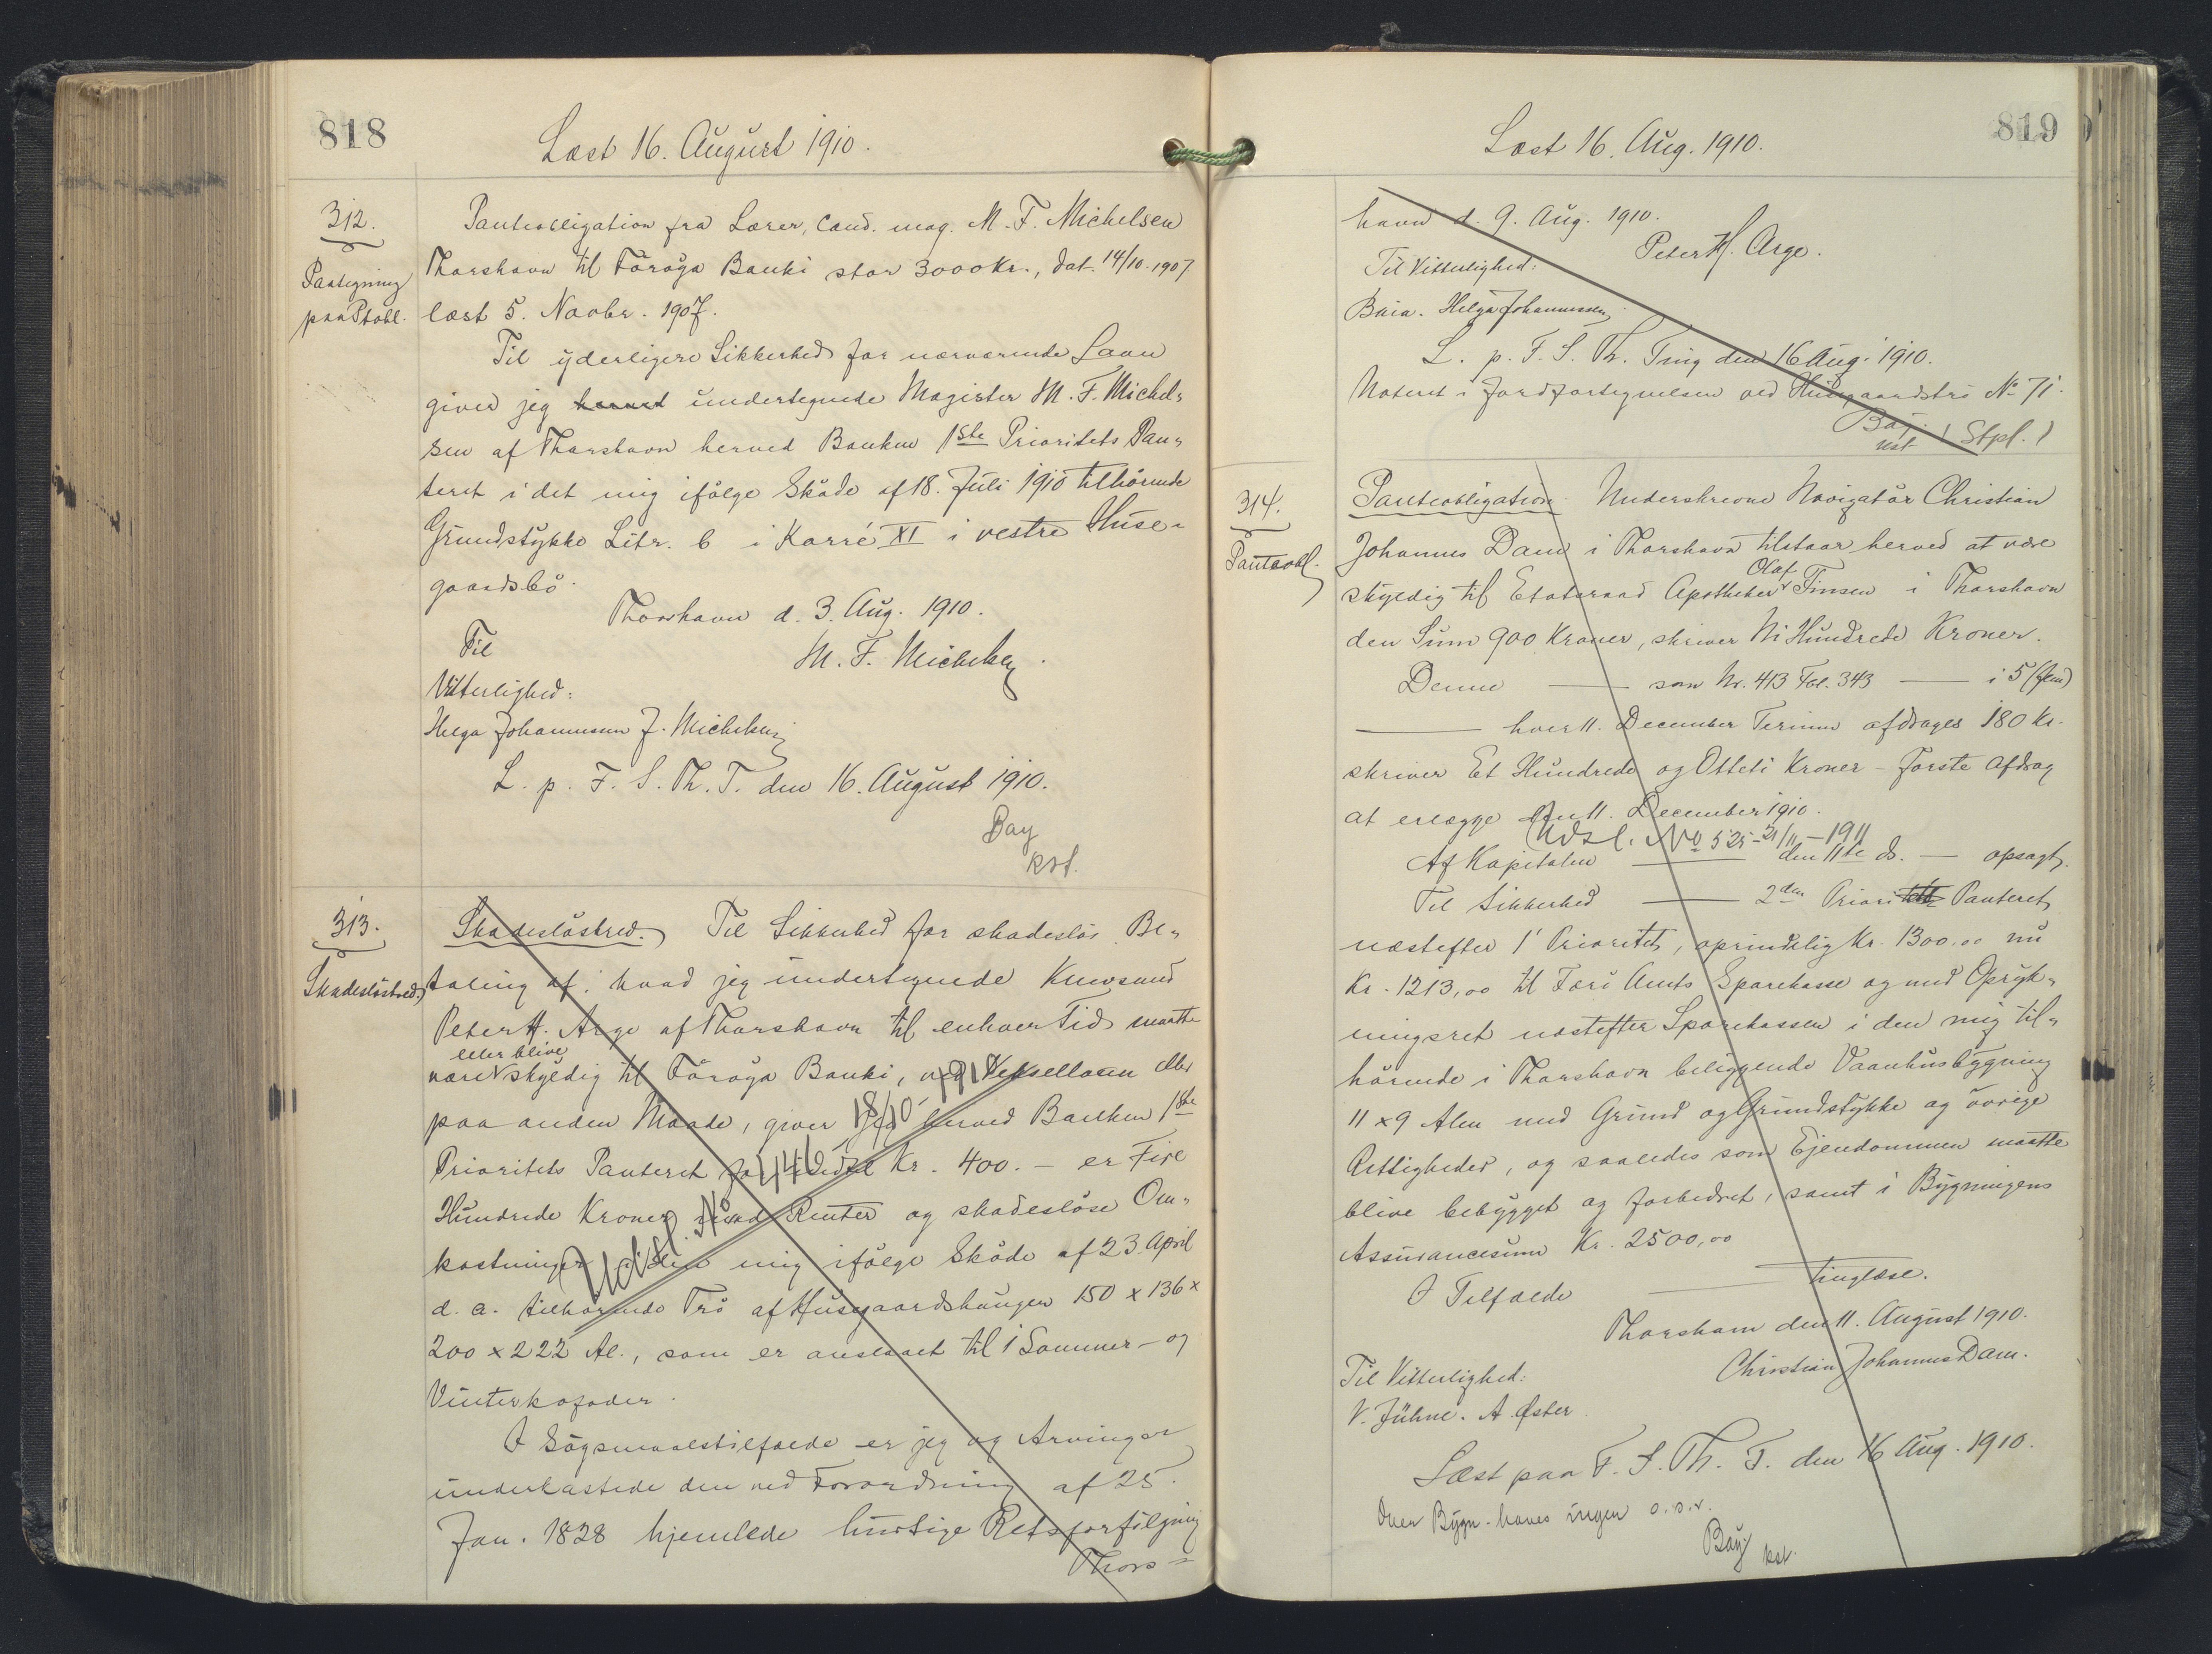 818
Læst 16. August 1910.
312.
Paategning
paa Ptobl.
Panteobligation fra Lærer, Cand. mag. M. F. Michelsen
Thorshavn til Föroya Banki stor 3000 Kr., dat. 14/10. 1907
læst 5. Novbr. 1907.
Til yderligere Sikkerhed for nærværende Laan
giver jeg herved undertegnede Magister M. F. Michel„
sen af Thorshavn herved Banken 1ste Prioritets Pan„
teret i det mig ifölge Sköde af 18. Juli 1910 tilhörende
Grundstykke Litr. b i Karré XI i vestre Huse„
gaardsbö.
Thorshavn d. 3. Aug. 1910.
Til
M. F. Michelsen.
Vitterlighed:
Helga Johannesen J. Michelsen
L. p. F. S. Th. T. den 16. August 1910.
Bay
kst.
313.
Skadeslöstbrd.
Skadeslöstbrd. Til Sikkerhed for skadeslös Be„
taling af hvad jeg undertegnede Kjøbmand
Peter H. Arge af Thorshavn til enhver Tid maatte
eller blive
være skyldig til Föroya Banki, ved Vexellaan eller
paa anden Maade, giver jeg herved Banken 1ste
Prioritets Panteret for indtil Kr. 400.- er Fire
Hundrede Kroner med Renter og skadeslöse Om„
kostninger i den mig ifölge Sköde af 23. April
d. a. tilhörende Trö af Husegaardshaugen 150 x 136 x
200 x 222 Al., som er anslaaet til 1 Sommer- og
Vinterkofoder.
Udsl. No 446 18/10-191
I Sögsmaalstilfælde er jeg og Arvinger
underkastede den ved Forordning af 25.
Jan. 1828 hjemlede hurtige Retsforfölgning
Thors=
819
Læst 16. Aug. 1910.
havn d. 9. Aug. 1910.
Peter H. Arge.
Til Vitterlighed:
Helga Johannessen
L. p. F. S. Th. Ting den 16 Aug. 1910.
Noteret i Jordfortegnelsen ved Husegaardströ No 71.
Bay. (Stpl.)
kst
314.
Panteobl.
Panteobligation. Underskrevne Navigatör Christian
Johannes Dam i Thorshavn tilstaar herved at være
Olaf
skyldig til Etatsraad Apotheker Finsen i Thorshavn
den Sum 900 Kroner, skriver Ni Hundrede Kroner.
Denne — som Nr. 413 Fol. 343 — i 5 (fem)
— hver 11. December Termin afdrages 180 Kr.
skriver Et Hundrede og Otteti Kroner - Första Afdrag
at erlægge den 11. December 1910.
Udsl. No 525-21/11-1911
Af Kapitalen — den 11te ds. — opsagt.
Til Sikkerhed — 2den Prioritets Panteret
næstefter 1' Prioritet, oprindelig Kr. 1300.00 nu
Kr. 1213,00 til Færö Amts Sparekasse og med Opryk„
ningsret næstefter Sparekassen i den mig til„
hörende i Thorshavn beliggende Vaanhusbygning
11 x 9 Alen med Grund og Grundstykke og övrige
Rettigheder, og saaledes som Ejendommen maatte
blive bebygget og forbedret, samt i Bygningens
Assurancesum Kr. 2500,00
I Tilfælde — tinglæse.
Thorshavn den 11. August 1910.
Christian Johannes Dam.
Til Vitterlighed:
V. Jühne. A. Øster
Læst paa F. S. Th. T. den 16 Aug. 1910.
Over Bygn. haves ingen o. s. v.
Bay kst.